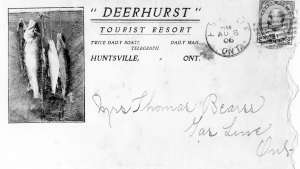 "DEERHURST"
TOURIST RESORT
TWICE DAILY BOATS. DAILY MAIL
TELEGRAPH
HUNTSVILLE, - ONT.
PM
AU 6
06
ONT.
Mrs Thomas
Ont